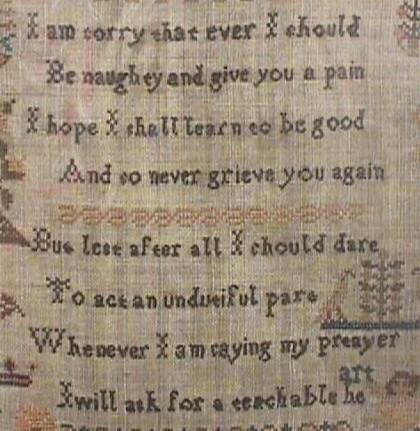 I am sorry that ever I should
Be naughty and give you a pain
I hope I shall learn to be good
And so never grieve you again
But lest after all I should dare
To act an undutiful part
Whenever I am saying my preayer
art
I will ask for a teachable he